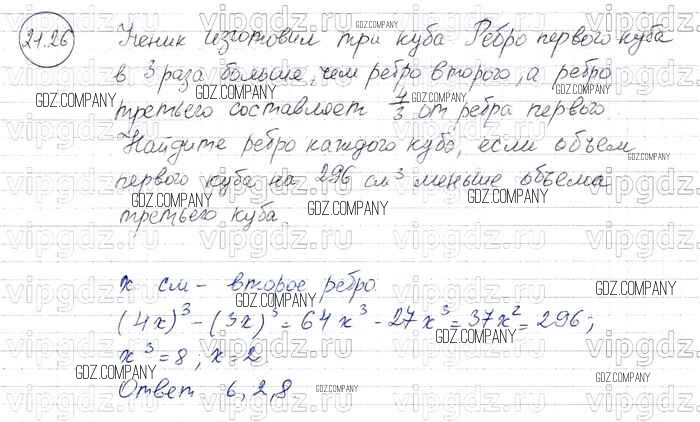 21.26
Ученик изготовил три куба. Ребро первого куба
в 3 раза больше, чем ребро второго, а ребро
третьего составляет 4/3 от ребра первого.
Найдите ребро каждого куба, если объем
первого куба на 296 см³ меньше объема
третьего куба.
x см - второе ребро.
(4x)³ - (3x)³ = 64x³ - 27x³ = 37x² = 296;
x³ = 8, x = 2
Ответ 6, 2, 8.
GDZ.COMPANY
vipgdz.ru